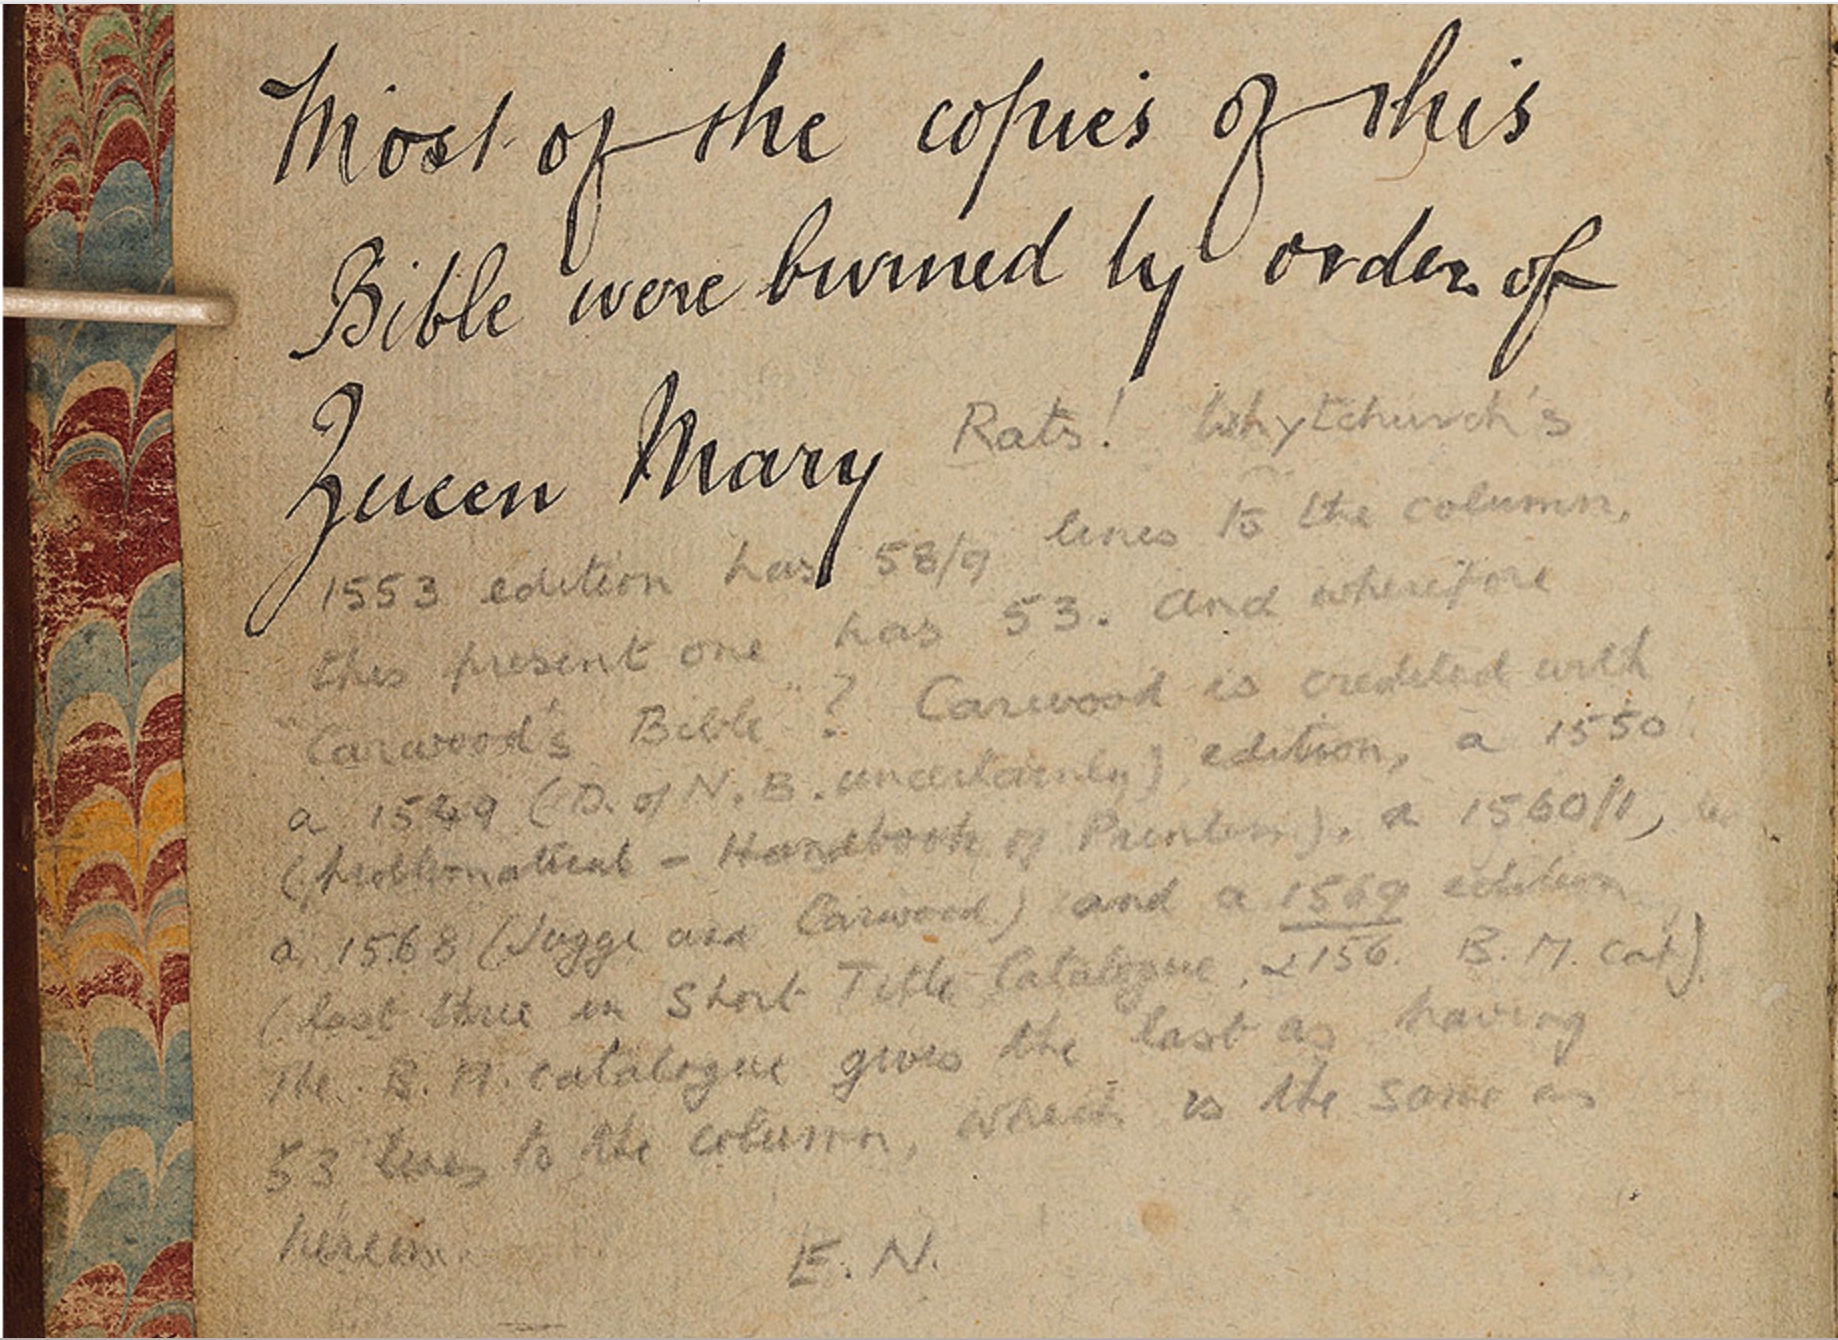 Most of the copies of this
Bible were burned by order of
Queen Mary
Rats! Whytchurch's
1553 edition has 58/9 lines to the column,
this present one has 53. And wherefore
"Carwood's Bible"? Carwood is credited with
a 1549 (D. of N. B. uncertainly) edition, a 1550
(problematical - Handbook of Printers), a 1560/1,
a 1568 (Jugge and Carwood) and a 1569 edition
(last three in Short Title Catalogue, B. M. Cat).
The B. M. catalogue gives the last as having
53 lines to the column, which is the same as
herein.
E. N.